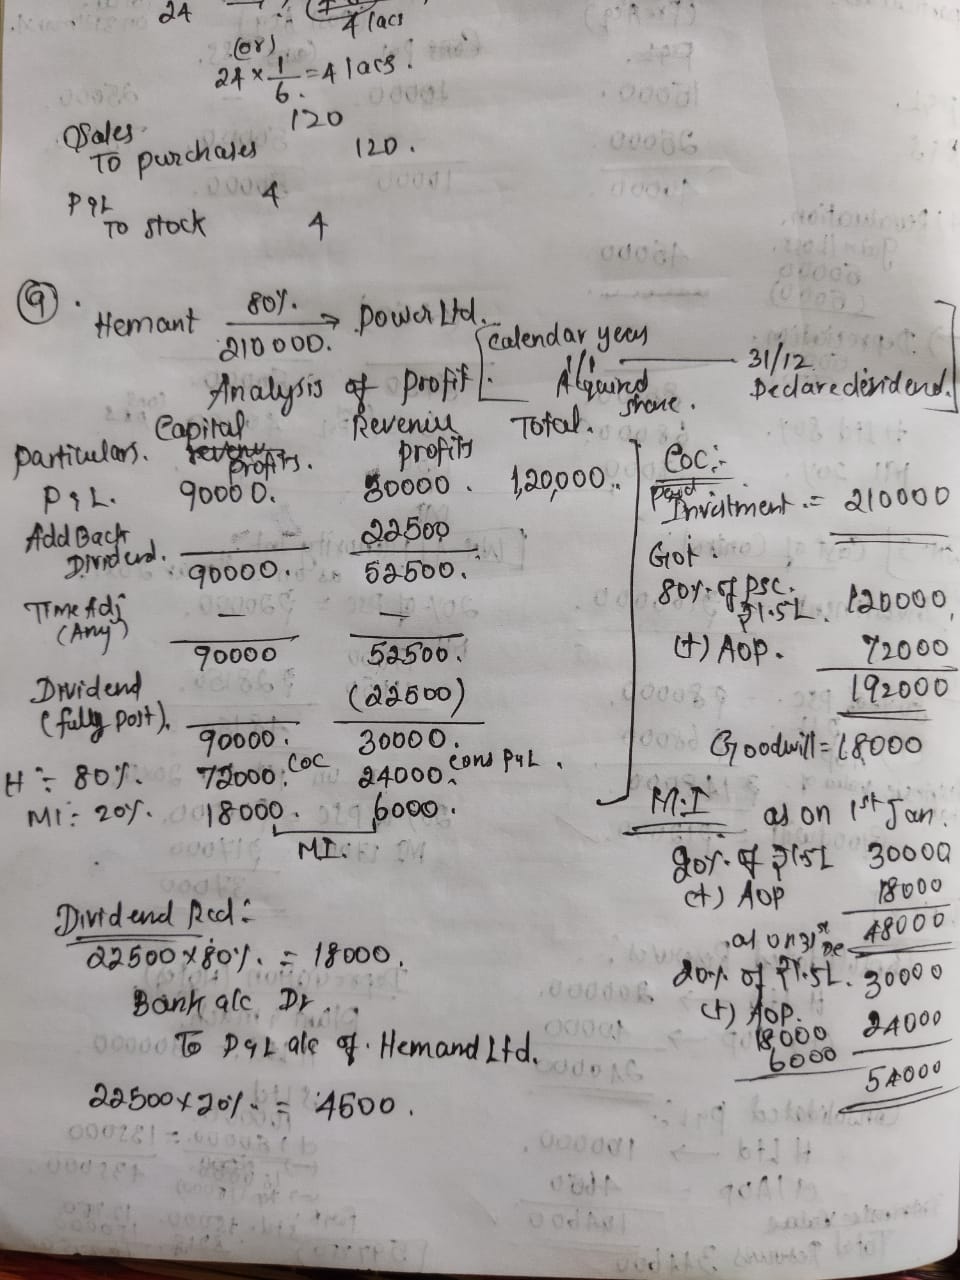 24
4 lacs
(or)
24 × 1/6 = 4 lacs.
Sales 120
To purchases 120.
P&L 4
To stock 4
(9). Hemant 80%. → Power Ltd.
210000.
[Calendar year
Acquired share. 31/12 Declare dividend.]
Analysis of profit:
Particulars. Capital profits. Revenue profits Total.
P&L. 90000. 30000. 1,20,000.
Add Back Dividend. — 22500
90000. 52500.
Time Adj (Any) — —
90000 52500.
Dividend (fully post). (22500)
90000. 30000.
H:- 80%. 72000: COC 24000: cons P&L.
MI:- 20%. 18000. 6000.
MI.
Dividend Recd:-
22500 × 80%. = 18000.
Bank a/c Dr...
To P&L a/c of. Hemand Ltd.
22500 × 20%. = 4500.
COC:-
paid
Investment.= 210000
Got.
80%. of PSC. ₹1.5L. 120000
(+) AOP. 72000
192000
Goodwill = 18000
M.I as on 1st Jan.
20%. of ₹1.5L 30000
(+) AOP 18000
as on 31st De 48000
20%. of ₹1.5L. 30000
(+) AOP. 24000
18,000
6000
54000